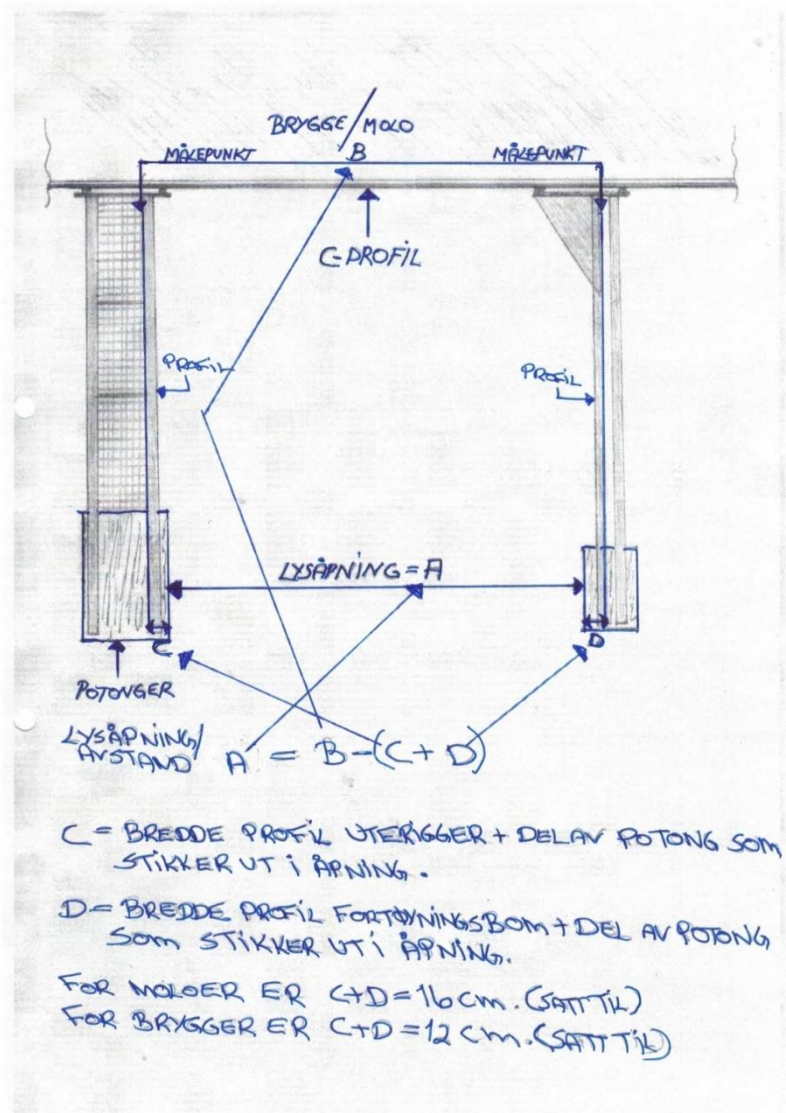 BRYGGE/MOLO
MÅLEPUNKT B MÅLEPUNKT
C-PROFIL
PROFIL
PROFIL
LYSÅPNING = A
C
D
POTONGER
LYSÅPNING/
AVSTAND A = B-(C+D)
C = BREDDE PROFIL UTERIGGER + DEL AV POTONG SOM
STIKKER UT I ÅPNING.
D = BREDDE PROFIL FORTØYNINGSBOM + DEL AV POTONG
SOM STIKKER UT I ÅPNING.
FOR MOLOER ER C+D = 16 cm. (SATT TIL)
FOR BRYGGER ER C+D = 12 cm. (SATT TIL)